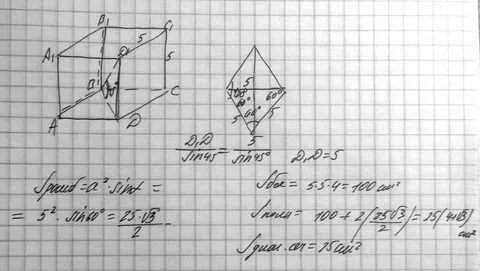 B₁ C₁
A₁ D₁ 5 5
B C
A D
5
60° 60°
5 60° 5
D₁D / sin45 = 5 / sin45° D₁D = 5
Sромб = a² · sinα =
= 5² · sin60° = 25·√3 / 2
Sбок = 5·5·4 = 100 см²
Sполн = 100 + 2(25√3 / 2) = 25(4+√3) см²
Sдиаг.сеч = 25 см²